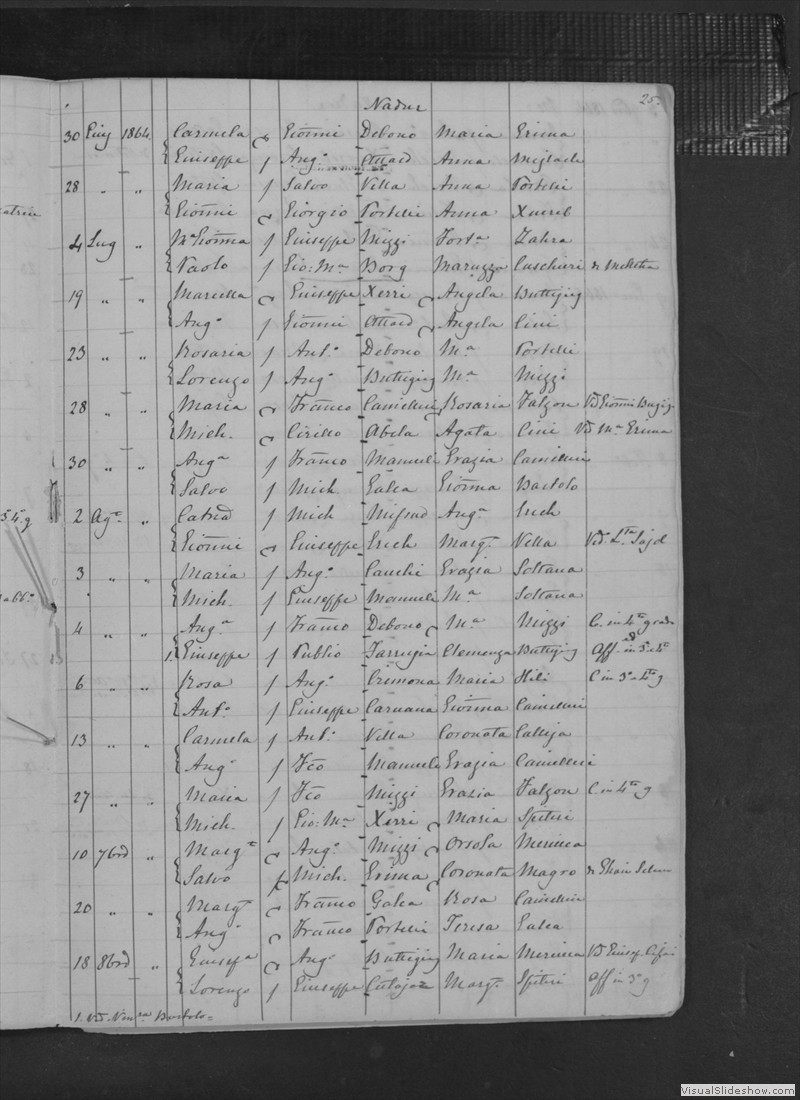 Nadur 25.
30 Giug 1864 Carmela Giōnni Debono Maria Grima
Giuseppe f Angº Attard Anna
28 " " Maria f Salvo Vella Anna Portelli
Giōnni Giorgio Portelli Anna Xuereb
4 Lug " Mª Giōnna f Giuseppe Mizzi Fortª Zahra
Paolo f Gio: Mª Borg Maruzza Cuschieri
19 " " Marcella Giuseppe Xerri Angela Buttigieg
Angº f Giōnni Attard Angela Cini
23 " " Rosaria f Antº Debono Mª Portelli
Lorenzo f Angº Buttigieg Mª Mizzi
28 " " Maria Franco Camilleri Rosaria Falzon Vd Giōnni
Mich. Cirillo Abela Agata Cini Vd Mª Grima
30 " " Angª f Franco Manueli Grazia Camilleri
Salvo f Mich. Galea Giōnna Bartolo
2 Agº " f Mich Mifsud Angª Grech
Giōnni Giuseppe Grech Margª Vella
3 " " Maria f Angº Cauchi Grazia Soltana
Mich. f Giuseppe Manueli Mª Soltana
4 " " Angª f Franco Debono Mª Mizzi C. in 4º grado
1. Giuseppe f Publio Farrugia Clemenza Buttigieg Aff. in 3º 4º
6 " " Rosa f Angº Cremona Maria Hili C in 3º 4º g
Antº f Giuseppe Caruana Giōnna Camilleri
13 " " Carmela f Antº Vella Coronata Calleja
Angº f Fco Manueli Grazia Camilleri
27 " " Maria f Fco Mizzi Grazia Falzon C in 4º g
Mich. f Gio: Mª Xerri Maria Spiteri
10 7bre " Margª Angº Mizzi Orsola
Salvo f Mich. Grima Coronata Magro
20 " " Margª Franco Galea Rosa Camilleri
Angº Franco Portelli Teresa Galea
18 8bre " Giusepª Angº Buttigieg Maria
Lorenzo f Giuseppe Margª Spiteri Aff in 3º g
1. Vd Bartolo=
VisualSlideshow.com